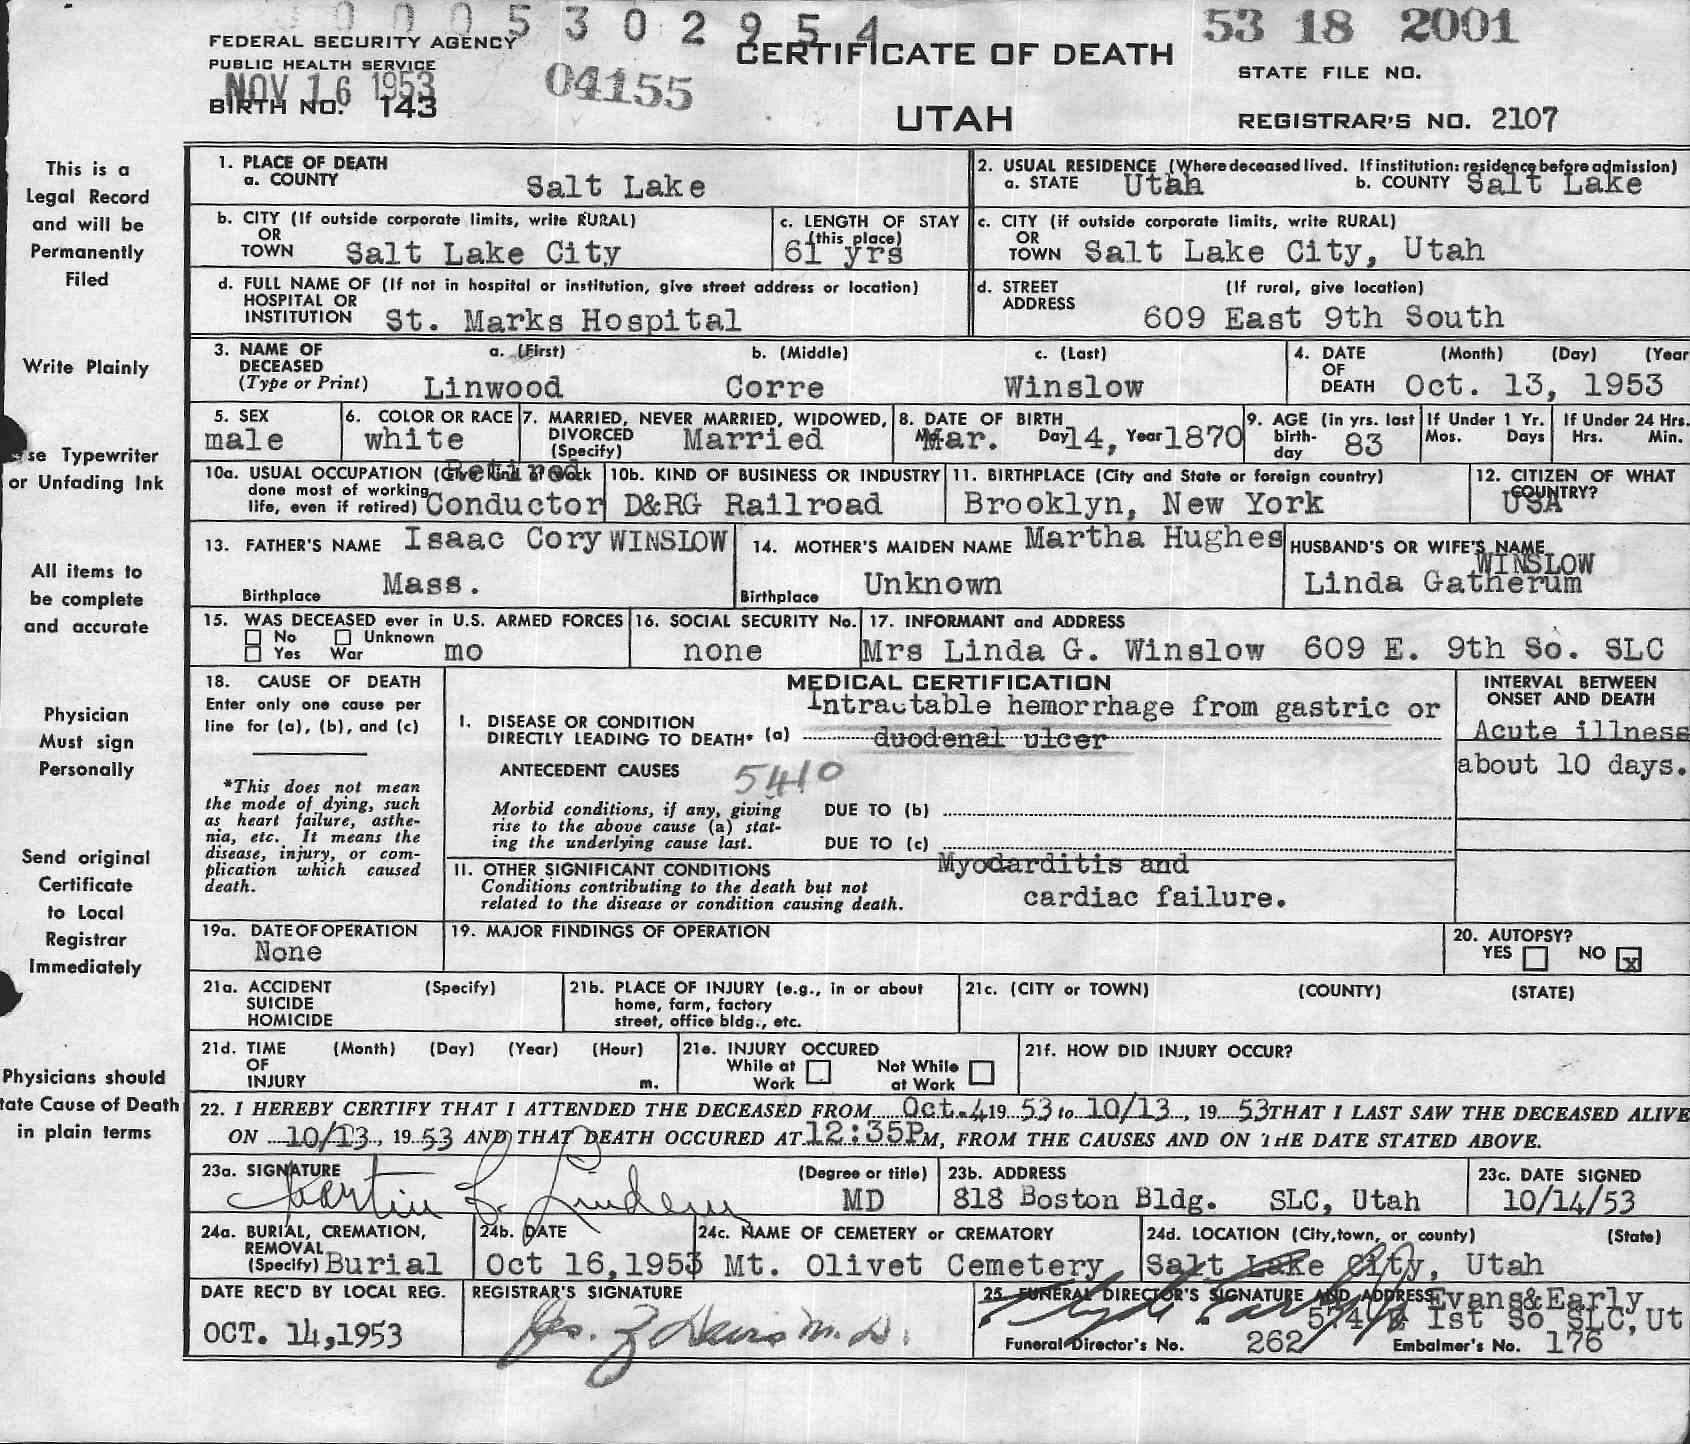 0005302954
53 18 2001
FEDERAL SECURITY AGENCY
PUBLIC HEALTH SERVICE
NOV 16 1953
BIRTH NO. 143
04155
CERTIFICATE OF DEATH
UTAH
STATE FILE NO.
REGISTRAR'S NO. 2107
This is a
Legal Record
and will be
Permanently
Filed
Write Plainly
se Typewriter
or Unfading Ink
All items to
be complete
and accurate
Physician
Must sign
Personally
Send original
Certificate
to Local
Registrar
Immediately
Physicians should
tate Cause of Death
in plain terms
1. PLACE OF DEATH
a. COUNTY Salt Lake
2. USUAL RESIDENCE (Where deceased lived. If institution: residence before admission)
a. STATE Utah b. COUNTY Salt Lake
b. CITY (If outside corporate limits, write RURAL)
OR
TOWN Salt Lake City
c. LENGTH OF STAY
(this place)
61 yrs
c. CITY (if outside corporate limits, write RURAL)
OR
TOWN Salt Lake City, Utah
d. FULL NAME OF (If not in hospital or institution, give street address or location)
HOSPITAL OR
INSTITUTION St. Marks Hospital
d. STREET (If rural, give location)
ADDRESS 609 East 9th South
3. NAME OF a. (First) b. (Middle) c. (Last)
DECEASED
(Type or Print) Linwood Corre Winslow
4. DATE (Month) (Day) (Year
OF
DEATH Oct. 13, 1953
5. SEX
male
6. COLOR OR RACE
white
7. MARRIED, NEVER MARRIED, WIDOWED,
DIVORCED Married
(Specify)
8. DATE OF BIRTH
Mar. Day 14, Year 1870
9. AGE (in yrs. last
birth- 83
day
If Under 1 Yr.
Mos. Days
If Under 24 Hrs.
Hrs. Min.
10a. USUAL OCCUPATION (Give kind of work Retired
done most of working
life, even if retired) Conductor
10b. KIND OF BUSINESS OR INDUSTRY
D&RG Railroad
11. BIRTHPLACE (City and State or foreign country)
Brooklyn, New York
12. CITIZEN OF WHAT
COUNTRY?
USA
13. FATHER'S NAME Isaac Cory WINSLOW
Birthplace Mass.
14. MOTHER'S MAIDEN NAME Martha Hughes
Birthplace Unknown
HUSBAND'S OR WIFE'S NAME
WINSLOW
Linda Gatherum
15. WAS DECEASED ever in U.S. ARMED FORCES
No Unknown
Yes War mo
16. SOCIAL SECURITY No.
none
17. INFORMANT and ADDRESS
Mrs Linda G. Winslow 609 E. 9th So. SLC
18. CAUSE OF DEATH
Enter only one cause per
line for (a), (b), and (c)
*This does not mean
the mode of dying, such
as heart failure, asthe-
nia, etc. It means the
disease, injury, or com-
plication which caused
death.
MEDICAL CERTIFICATION
Intractable hemorrhage from gastric or
I. DISEASE OR CONDITION
DIRECTLY LEADING TO DEATH* (a) duodenal ulcer
ANTECEDENT CAUSES 5410
Morbid conditions, if any, giving DUE TO (b)
rise to the above cause (a) stat-
ing the underlying cause last. DUE TO (c)
II. OTHER SIGNIFICANT CONDITIONS Myodarditis and
Conditions contributing to the death but not
related to the disease or condition causing death. cardiac failure.
INTERVAL BETWEEN
ONSET AND DEATH
Acute illness
about 10 days.
19a. DATE OF OPERATION
None
19. MAJOR FINDINGS OF OPERATION
20. AUTOPSY?
YES NO x
21a. ACCIDENT (Specify)
SUICIDE
HOMICIDE
21b. PLACE OF INJURY (e.g., in or about
home, farm, factory
street, office bldg., etc.
21c. (CITY or TOWN) (COUNTY) (STATE)
21d. TIME (Month) (Day) (Year) (Hour)
OF
INJURY m.
21e. INJURY OCCURED
While at Not While
Work at Work
21f. HOW DID INJURY OCCUR?
22. I HEREBY CERTIFY THAT I ATTENDED THE DECEASED FROM Oct. 4 19 53 to 10/13, 19 53 THAT I LAST SAW THE DECEASED ALIVE
ON 10/13, 19 53 AND THAT DEATH OCCURED AT 12:35P M, FROM THE CAUSES AND ON THE DATE STATED ABOVE.
23a. SIGNATURE (Degree or title)
Martin L. Lindem MD
23b. ADDRESS
818 Boston Bldg. SLC, Utah
23c. DATE SIGNED
10/14/53
24a. BURIAL, CREMATION,
REMOVAL
(Specify) Burial
24b. DATE
Oct 16, 1953
24c. NAME OF CEMETERY or CREMATORY
Mt. Olivet Cemetery
24d. LOCATION (City, town, or county) (State)
Salt Lake City, Utah
DATE REC'D BY LOCAL REG.
OCT. 14, 1953
REGISTRAR'S SIGNATURE
25. FUNERAL DIRECTOR'S SIGNATURE AND ADDRESS Evans&Early
574 E 1st So SLC, Ut
Funeral Director's No. 262 Embalmer's No. 176